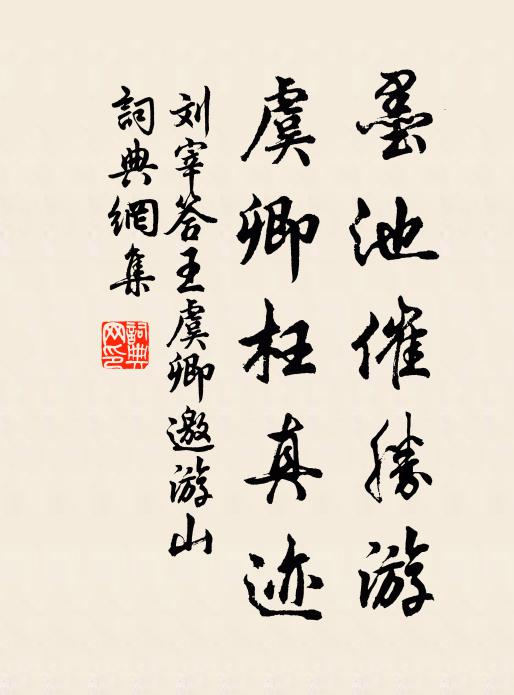 墨池催勝游
虞卿枉真迹
刘宰答王虞卿邀游山
詞典網集
詞典
网印